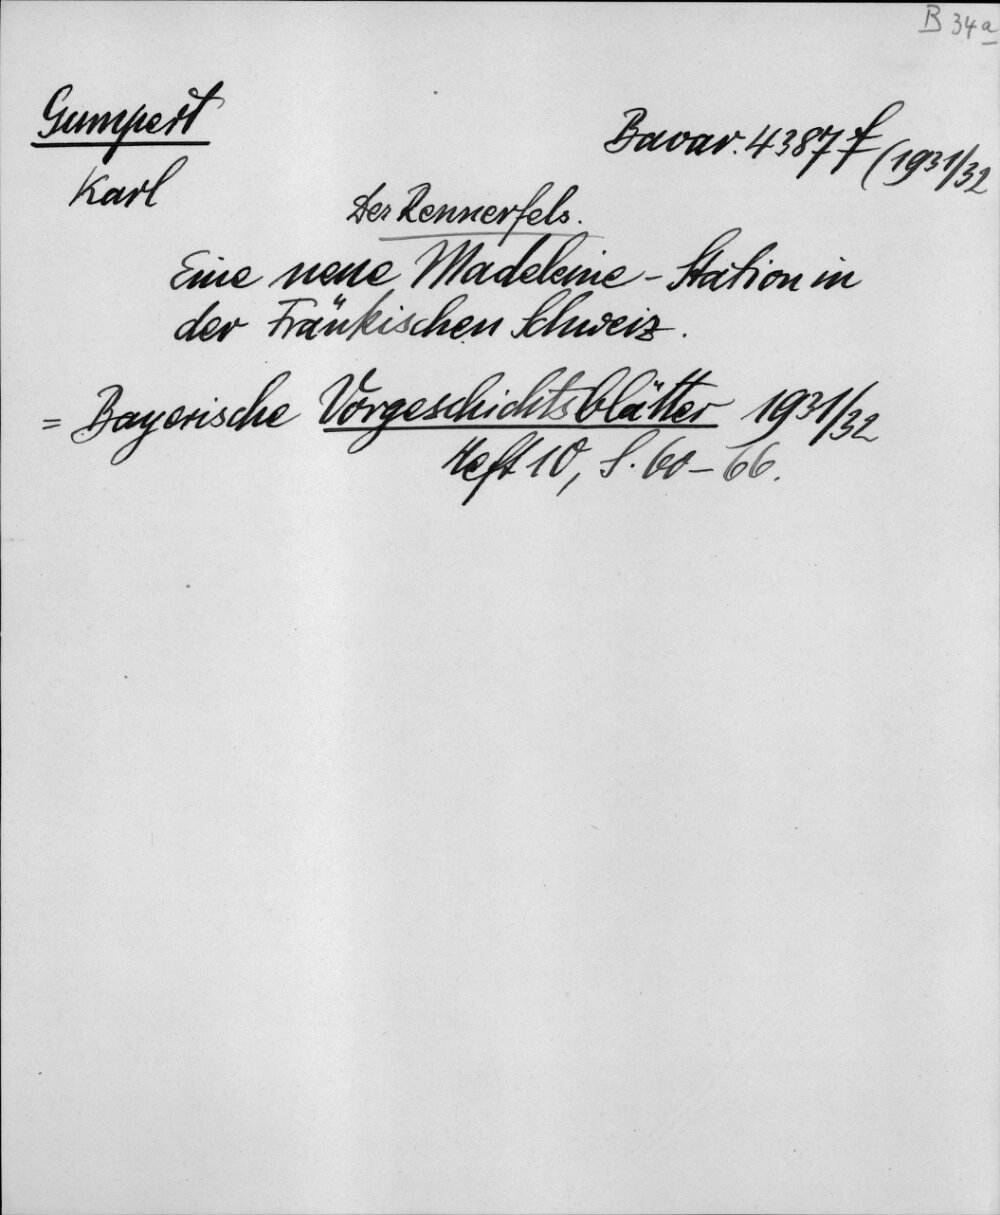 B 34a
Gumpert
Bavar. 4387 f (1931/32
Karl
Der Rennerfels.
Eine neue Madeleine - Station in
der Fränkischen Schweiz.
= Bayerische Vorgeschichtsblätter 1931/32
Heft 10, S. 60-66.